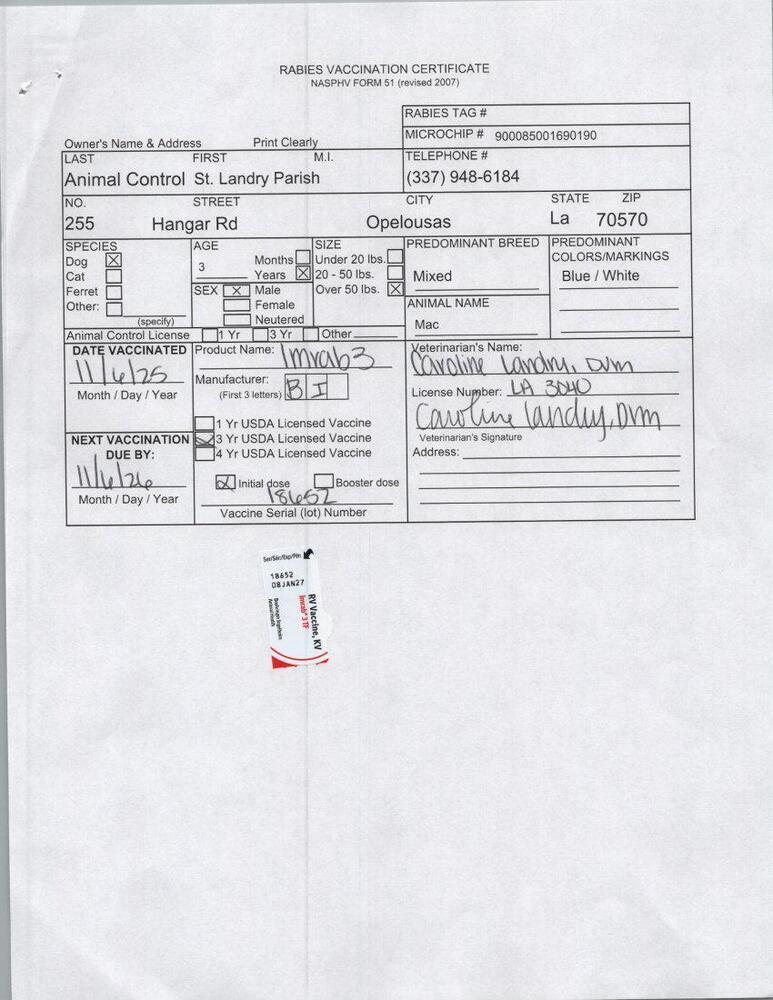 RABIES VACCINATION CERTIFICATE
NASPHV FORM 51 (revised 2007)
RABIES TAG #
MICROCHIP # 900085001690190
Owner's Name & Address Print Clearly
LAST FIRST M.I.
TELEPHONE #
Animal Control St. Landry Parish
(337) 948-6184
NO. STREET CITY STATE ZIP
255 Hangar Rd Opelousas La 70570
SPECIES
Dog
Cat
Ferret
Other:
(specify)
AGE
3
Months
Years
SEX Male
Female
Neutered
SIZE
Under 20 lbs.
20 - 50 lbs.
Over 50 lbs.
PREDOMINANT BREED
Mixed
PREDOMINANT
COLORS/MARKINGS
Blue / White
ANIMAL NAME
Mac
Animal Control License 1 Yr 3 Yr Other
DATE VACCINATED
11/6/25
Month / Day / Year
NEXT VACCINATION
DUE BY:
11/6/26
Month / Day / Year
Product Name: Imrab 3
Manufacturer:
(First 3 letters) B I
1 Yr USDA Licensed Vaccine
3 Yr USDA Licensed Vaccine
4 Yr USDA Licensed Vaccine
Initial dose Booster dose
18652
Vaccine Serial (lot) Number
Veterinarian's Name:
Caroline Landry, DVM
License Number: LA 3040
Caroline Landry, DVM
Veterinarian's Signature
Address:
Ser/Sér/Exp/Per:
18652
08JAN27
RV Vaccine, KV
Imrab® 3 TF
Boehringer Ingelheim
Animal Health